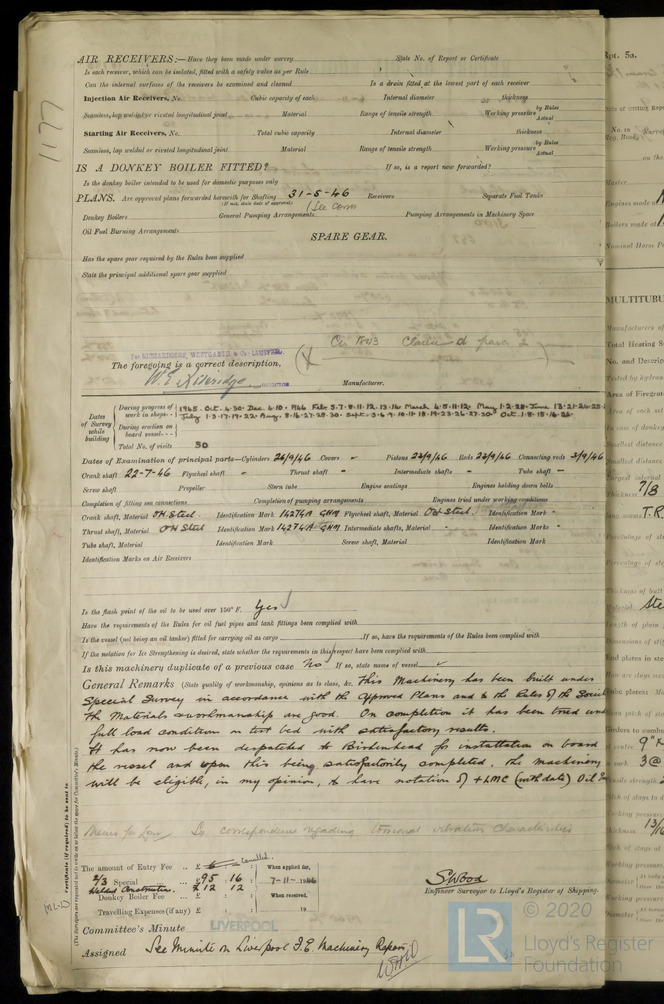 AIR RECEIVERS:—Have they been made under survey State No. of Report or Certificate
Is each receiver, which can be isolated, fitted with a safety valve as per Rule
Can the internal surfaces of the receivers be examined and cleaned Is a drain fitted at the lowest part of each receiver
Injection Air Receivers, No. Cubic capacity of each Internal diameter thickness
Seamless, lap welded or riveted longitudinal joint Material Range of tensile strength Working pressure by Rules Actual
Starting Air Receivers, No. Total cubic capacity Internal diameter thickness
Seamless, lap welded or riveted longitudinal joint Material Range of tensile strength Working pressure by Rules Actual
IS A DONKEY BOILER FITTED? If so, is a report now forwarded?
Is the donkey boiler intended to be used for domestic purposes only
PLANS. Are approved plans forwarded herewith for Shafting 31-5-46 Receivers Separate Fuel Tanks
(If not, state date of approval)
(See corres
Donkey Boilers General Pumping Arrangements Pumping Arrangements in Machinery Space
Oil Fuel Burning Arrangements
SPARE GEAR.
Has the spare gear required by the Rules been supplied
State the principal additional spare gear supplied
1177
For RICHARDSONS, WESTGARTH & Co. LIMITED.
The foregoing is a correct description,
Manufacturer.
Dates of Survey while building
During progress of work in shops - - 1945. Oct. 4.30. Dec. 6.10. 1946 Feb. 5.7.8.11.12.13.14. March 4.5.11.12. May 1.2.28. June 13.21.26.28.
July 1.3.17.19.22. Aug. 8.16.27.28.30. Sept. 3.6.9.10.11.18.19.23.26.27.30. Oct. 1.8.15.16.24.
During erection on board vessel - - -
Total No. of visits 50
Dates of Examination of principal parts—Cylinders 26/9/46 Covers " Pistons 23/9/46 Rods 23/9/46 Connecting rods 3/9/46
Crank shaft 22-7-46 Flywheel shaft - Thrust shaft - Intermediate shafts - Tube shaft -
Screw shaft Propeller Stern tube Engine seatings Engines holding down bolts
Completion of fitting sea connections Completion of pumping arrangements Engines tried under working conditions
Crank shaft, Material OH Steel. Identification Mark 14274A GHM Flywheel shaft, Material OH Steel. Identification Mark -
Thrust shaft, Material OH Steel Identification Mark 14274A GHM Intermediate shafts, Material - Identification Marks -
Tube shaft, Material Identification Mark Screw shaft, Material Identification Mark
Identification Marks on Air Receivers
Is the flash point of the oil to be used over 150° F. Yes
Have the requirements of the Rules for oil fuel pipes and tank fittings been complied with
Is the vessel (not being an oil tanker) fitted for carrying oil as cargo If so, have the requirements of the Rules been complied with
If the notation for Ice Strengthening is desired, state whether the requirements in this respect have been complied with
Is this machinery duplicate of a previous case No If so, state name of vessel
General Remarks (State quality of workmanship, opinions as to class, &c. This Machinery has been built under
Special Survey in accordance with the Approved Plans and to the Rules of the Societ
The Materials & workmanship are good. On completion it has been tried und
full load condition on test bed with satisfactory results.
It has now been despatched to Birkenhead for installation on board
the vessel and upon this being satisfactorily completed, the machinery
will be eligible, in my opinion, to have notation of +LMC (with date) Oil
correspondence regarding torsional vibration characteristics
The amount of Entry Fee .. £ 6 : cancelled. When applied for,
2/3 Special .. £95 : 16 7-11-1946
Welded Construction. £12 12
Donkey Boiler Fee .. £ : : When received,
Travelling Expenses (if any) £ : : 19
SWood
Engineer Surveyor to Lloyd's Register of Shipping.
Committee's Minute LIVERPOOL
Assigned See Minute on Liverpool F.E. Machinery Report
Certificate (if required) to be sent to
(The Surveyors are requested not to write on or below the space for Committee's Minute.)
Rpt. 5a.
MULTITUBU
7/8
T.R.
Ste
9"
3@
13/16
LR
© 2020
Lloyd's Register
Foundation